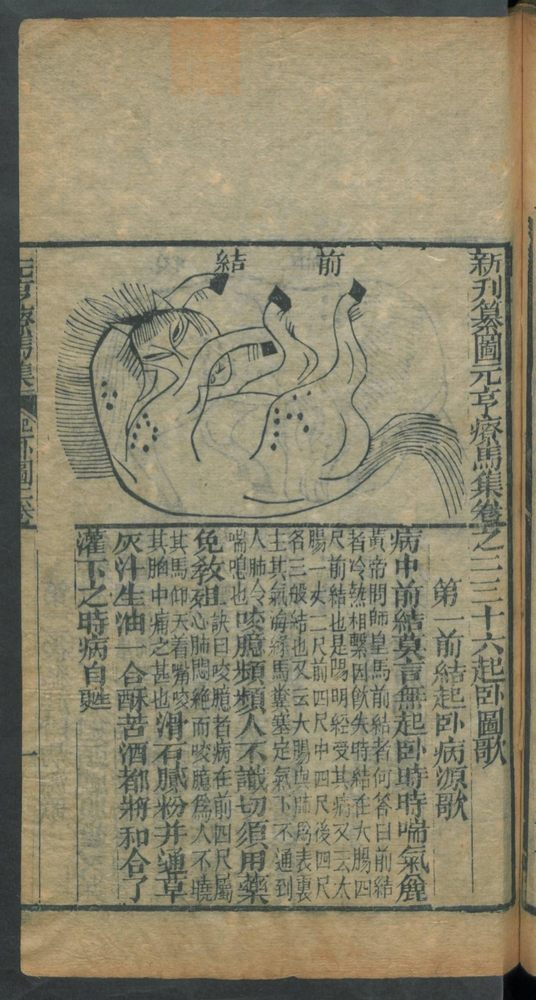 新刋纂圖元亨療馬集卷之二三十六起卧圖歌
前結
第一前結起卧病源歌
病中前結莫言無起卧時時喘氣麄
黃帝問師皇馬前結者何答曰前結
者冷熱相繫因飲失時結在大腸四
尺前結也是陽明經受其病又云太
腸一丈二尺前四尺中四尺後四尺
名三般結也又云大腸與肺爲表裏
主其氣海緣馬糞塞定氣下不通到
人肺令
喘嗚也
咬臆頻頻人不識切須用藥
免教殂
訣曰咬臆者病在前四尺屬
心肺悶絕而咬臆爲人不曉
其馬仰天着嘴咬
其胸中痛之甚也
滑石膩粉并連草
灰汁生油一合酥苦酒都將和合了
灌下之時病自甦
元亨療馬集
起卧圖二卷
一